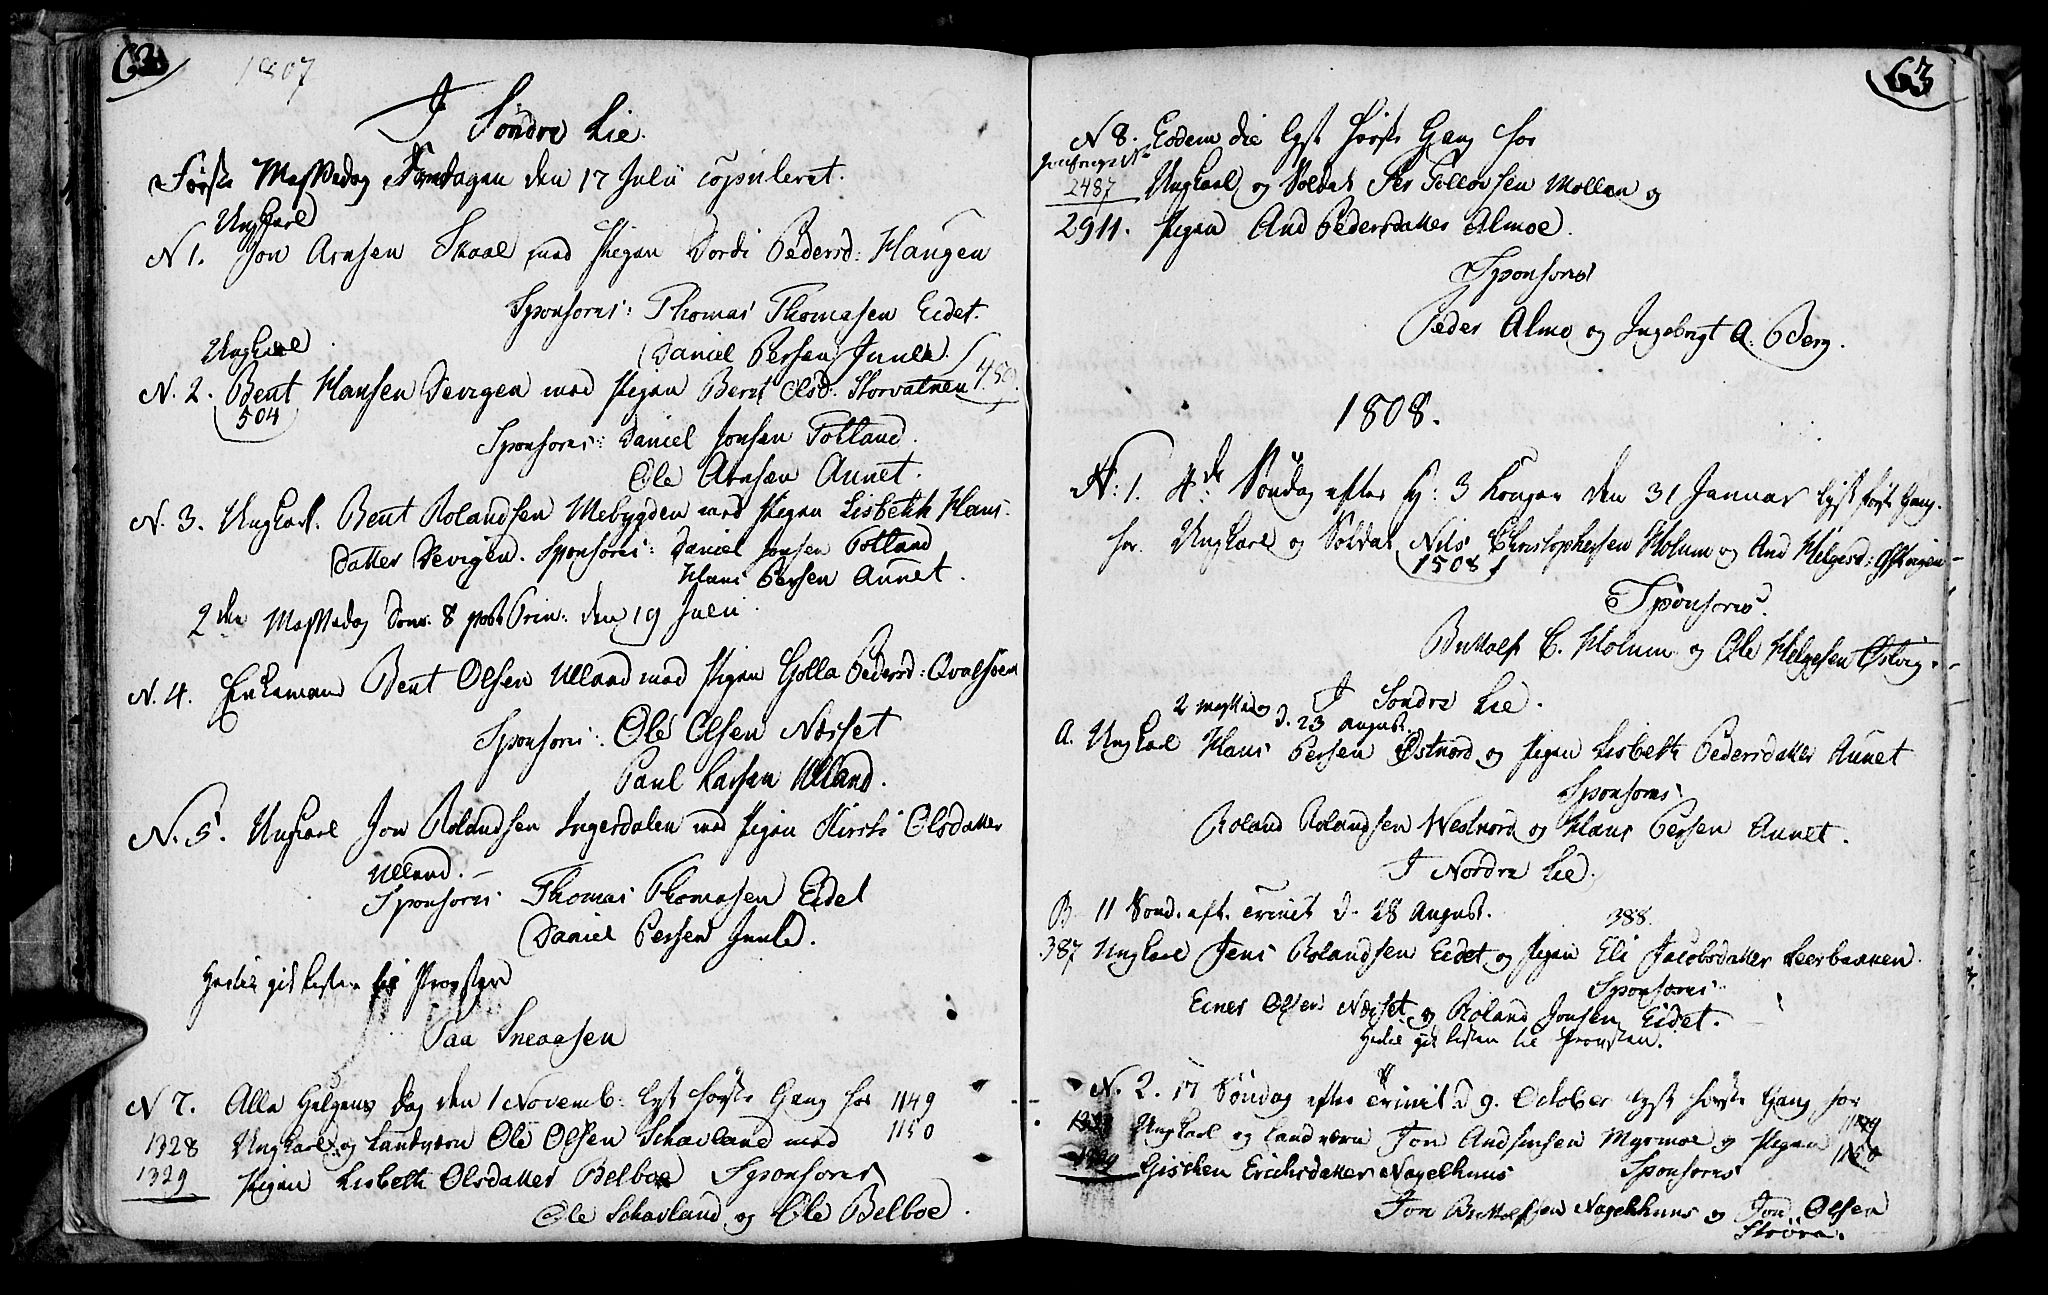 62
1807
I Söndre Lie.
Første Messedag Fredagen den 17 Julii copuleret.
Ungkarl
N 1. Jon Arnsen Skaal med Pigen Dordi Pedersd: Haugen
Sponsores: Thomas Thomasen Eidet.
Ungkarl
Daniel Persen Juule.
N. 2. Bent Hansen Devigen med Pigen Beret Olsd: Storvatnen
504
Sponsores: Daniel Jonsen Totland.
Ole Arnsen Aunet.
N. 3. Ungkarl. Bent Rolandsen Mebygden med Pigen Lisbeth Hans-
datter Devigen. Sponsores: Daniel Jonsen Totland
Hans Persen Aunet.
2den Messedag Dom: 8 post Trin: den 19 Julii.
N. 4. Enkemand Bent Olsen Ulland med Pigen Golla Pedersd: Qvalsoen
Sponsores: Ole Olsen Næsset
Paul Larsen Ulland.
N. 5. Ungkarl Jon Rolandsen Ingersdalen med Pigen Kirsti Olsdatter
Ulland.-
Sponsores Thomas Thomasen Eidet
Daniel Persen Juule.
Hertil gik Listen til Provsten
Paa Sneaasen
N 7. Alle Helgens Dag den 1 Novemb: lyst første Gang for 1149
1328 Ungkarl og Landværn Ole Olsen Schavland med 1150
1329 Pigen Lisbeth Olsdatter Belboe Sponsores
Ole Schavland og Ole Belboe.
63
N 8. Eodem die lyst første Gang for
2487 Ungkarl og Soldat Per Tollovsen Mollan og
2911. Pigen And Pedersdatter Almoe.
Sponsores
Peder Almo og Ingebrigt A: Berg.
1808.
N: 1. 4de Søndag efter H: 3 Konger den 31 Januar lyst første Gang.
for. Ungkarl og Soldat Nils Christophersen Holum og And Helgesd:
1508
Sponsores.
Buttolf C. Holum og Ole Helgesen Østvig.
I Söndre Lie.
2 Messedag d. 23 august.
A. Ungkarl Hans Persen Østnord og Pigen Lisbeth Pedersdatter Aunet
Sponsores
Roland Rolandsen Westnord og Hans Persen Aunet.
I Nordre Lie.
B 11 Sönd. eft. Trinit d. 28 August. 388.
387 Ungkarl Jens Rolandsen Eidet og Pigen Eli Jacobsdatter Leerbakken.
Sponsores
Einer Olsen Næsset og Roland Jonsen Eidet.
Hertil gik Listen til Provsten.
N. 2. 17 Söndag efter Trinit d 9. October lyst første Gang for
1328 Ungkarl og Landværn Jon Andersen Myrmoe og Pigen 1149
1329 Gischen Erichsdatter Nagelhuus Sponsores 1150
Jon Buttolfsen Nagelhuus og Jon Olsen
Ströra.